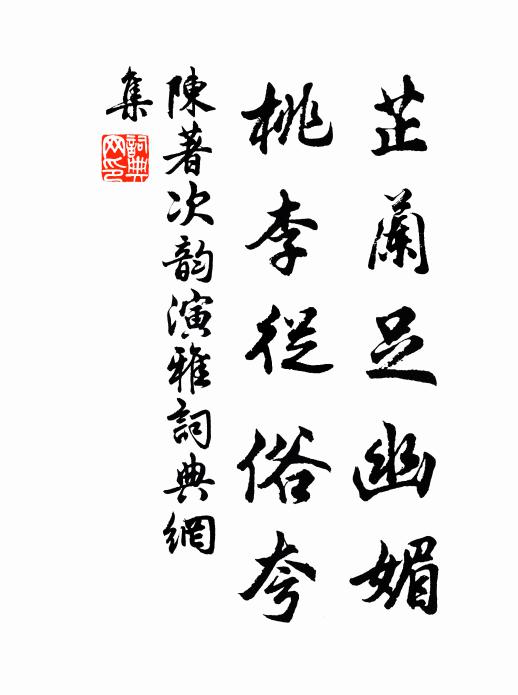 芷蘭足幽媚
桃李從俗夸
陳著次韵演雅詞典網
集
詞典
网印